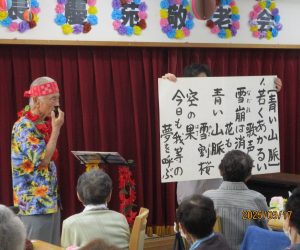 長慶苑敬老会
【青い山脈】
一、若くあかるい
歌声に
雪崩は消える
花も咲く
青い山脈
雪割桜
空の果
今日も我等の
夢を呼ぶ